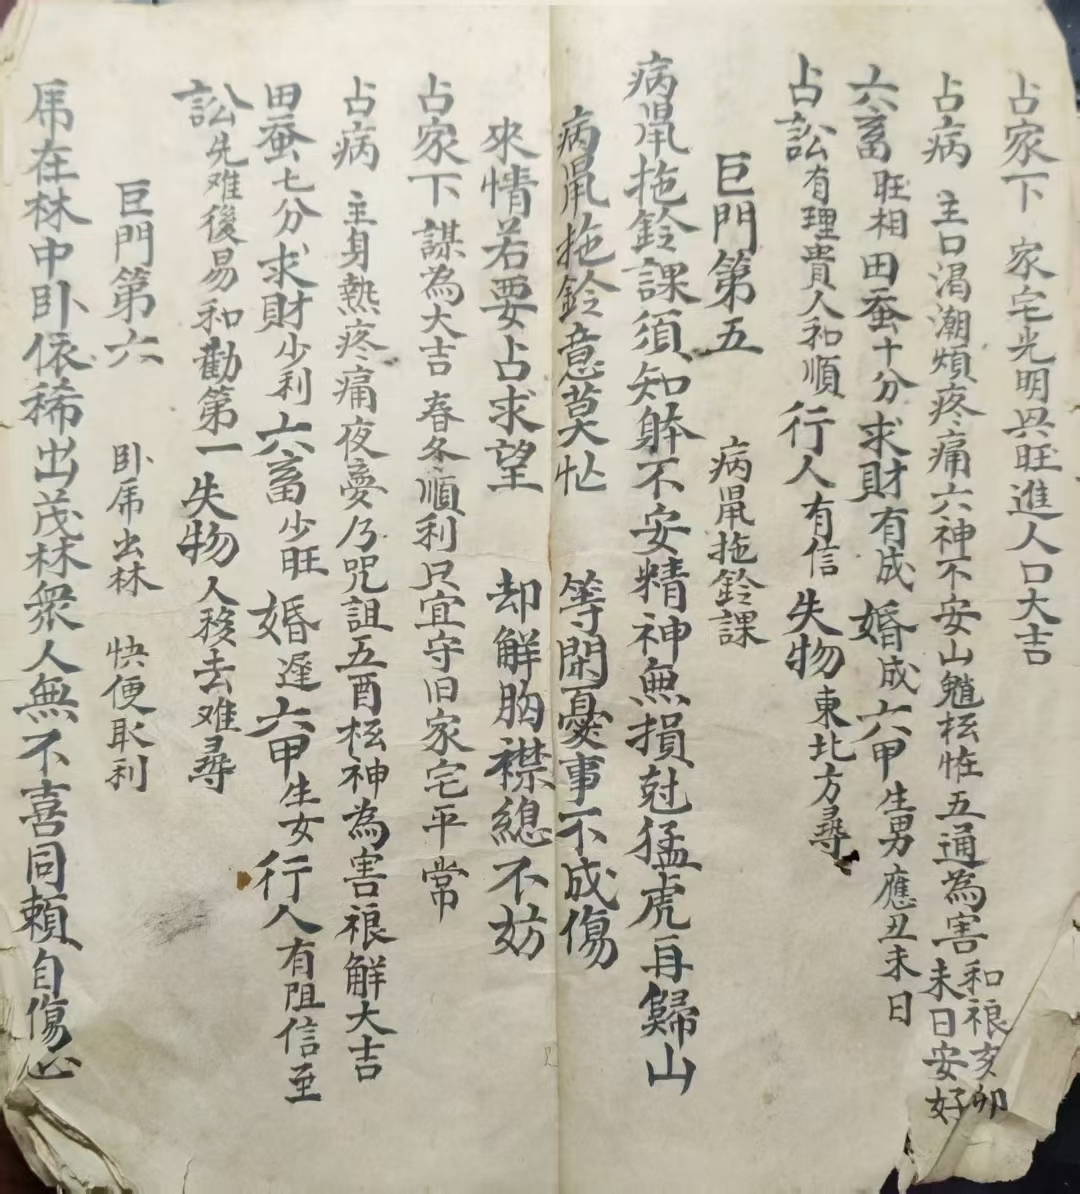 占家下 家宅光明興旺進人口大吉
占病 主口渴潮煩疼痛六神不安山魈枉恠五通為害和禳亥卯未日安好
六畜旺相田蚕十分求財有成婚成六甲生男應丑未日
占訟有理貴人和順行人有信失物東北方尋
巨門第五 病鼠拖鈴課
病鼠拖鈴課須知躰不安精神無損尅猛虎再歸山
病鼠拖鈴意莫忙 等閑憂事不成傷
來情若要占求望 却解胸襟總不妨
占家下 謀為大吉 春冬順利只宜守旧家宅平常
占病 主身熱疼痛夜夢乃咒詛五酉枉神為害禳解大吉
田蚕七分求財少利六畜少旺 婚遲六甲生女行人有阻信至
訟先难後易和勸第一失物人移去难尋
巨門第六 卧虎出林 快便取利
虎在林中卧依稀出茂林衆人無不喜同賴自傷心